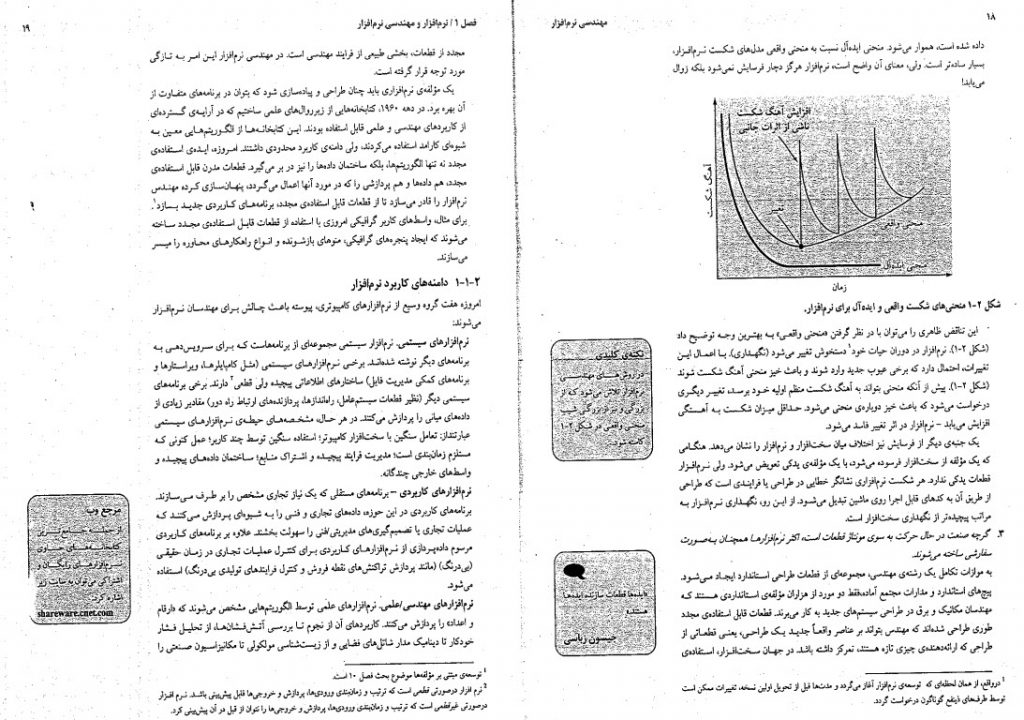 ۱۸
مهندسی نرم‌افزار
داده شده است، هموار می‌شود. منحنی ایده‌آل نسبت به منحنی واقعی مدل‌های شکست نرم‌افزار،
بسیار ساده‌تر است. ولی، معنای آن واضح است، نرم‌افزار هرگز دچار فرسایش نمی‌شود بلکه زوال
می‌یابد!
افزایش آهنگ شکست
ناشی از اثرات جانبی
آهنگ شکست
تغییر
منحنی واقعی
منحنی ایده‌آل
زمان
شکل ۲-۱ منحنی‌های شکست واقعی و ایده‌آل برای نرم‌افزار.
این تناقض ظاهری را می‌توان با در نظر گرفتن «منحنی واقعی» به بهترین وجه توضیح داد
(شکل ۲-۱). نرم‌افزار در دوران حیات خود۱ دستخوش تغییر می‌شود (نگهداری). با اعمال این
تغییرات، احتمال دارد که برخی عیوب جدید وارد شوند و باعث خیز منحنی آهنگ شکست شوند
(شکل ۲-۱). پیش از آنکه منحنی بتواند به آهنگ شکست منظم اولیه خود برسد، تغییر دیگری
درخواست می‌شود که باعث خیز دوباره‌ی منحنی می‌شود. حداقل میزان شکست به آهستگی
افزایش می‌یابد – نرم‌افزار در اثر تغییر فاسد می‌شود.
یک جنبه‌ی دیگر از فرسایش نیز اختلاف میان سخت‌افزار و نرم‌افزار را نشان می‌دهد. هنگامی
که یک مؤلفه از سخت‌افزار فرسوده می‌شود، با یک مؤلفه‌ی یدکی تعویض می‌شود. ولی نرم‌افزار
قطعات یدکی ندارد. هر شکست نرم‌افزاری نشانگر خطایی در طراحی یا فرایندی است که طراحی
از طریق آن به کدهای قابل اجرا روی ماشین تبدیل می‌شود. از این رو، نگهداری نرم‌افزار به
مراتب پیچیده‌تر از نگهداری سخت‌افزار است.
۳. گرچه صنعت در حال حرکت به سوی مونتاژ قطعات است، اکثر نرم‌افزارها همچنان به‌صورت
سفارشی ساخته می‌شوند.
به موازات تکامل یک رشته‌ی مهندسی، مجموعه‌ای از قطعات طراحی استاندارد ایجاد می‌شود.
پیچ‌های استاندارد و مدارات مجتمع آماده، فقط دو مورد از هزاران مؤلفه‌ی استانداردی هستند که
مهندسان مکانیک و برق در طراحی سیستم‌های جدید به کار می‌برند. قطعات قابل استفاده‌ی مجدد
طوری طراحی شده‌اند که مهندس بتواند بر عناصر واقعاً جدید یک طراحی، یعنی قطعاتی از
طراحی که ارائه‌دهنده‌ی چیزی تازه هستند، تمرکز داشته باشد. در جهان سخت‌افزار، استفاده‌ی
نکته‌ی کلیدی
در روش‌های مهندسی
نرم‌افزار تلاش می‌شود که از
بزرگی و نیز از بزرگی شیب
منحنی واقعی در شکل ۲-۱
کاسته شود.
«ایده‌ها قطعات سازنده ایده‌ها
هستند»
جیسون زبانی
۱ درواقع، از همان لحظه‌ای که توسعه‌ی نرم‌افزار آغاز می‌گردد و مدت‌ها قبل از تحویل اولین نسخه، تغییرات ممکن است
توسط طرف‌های ذینفع گوناگون درخواست گردد.
فصل ۱ / نرم‌افزار و مهندسی نرم‌افزار
۱۹
مجدد از قطعات، بخشی طبیعی از فرایند مهندسی است. در مهندسی نرم‌افزار این امر به تازگی
مورد توجه قرار گرفته است.
یک مؤلفه‌ی نرم‌افزاری باید چنان طراحی و پیاده‌سازی شود که بتوان در برنامه‌های متفاوت از
آن بهره برد. در دهه ۱۹۶۰، کتابخانه‌هایی از زیرروال‌های علمی ساختیم که در آرایه‌ی گسترده‌ای
از کاربردهای مهندسی و علمی قابل استفاده بودند. این کتابخانه‌ها از الگوریتم‌هایی معین به
شیوه‌ای کارامد استفاده می‌کردند، ولی دامنه‌ی کاربرد محدودی داشتند. امروزه، ایده‌ی استفاده‌ی
مجدد نه تنها الگوریتم‌ها، بلکه ساختمان داده‌ها را نیز در بر می‌گیرد. قطعات مدرن قابل استفاده‌ی
مجدد، هم داده‌ها و هم پردازشی را که در مورد آنها اعمال می‌گردد، پنهان‌سازی کرده مهندس
نرم‌افزار را قادر می‌سازد تا از قطعات قابل استفاده‌ی مجدد، برنامه‌های کاربردی جدید بسازد۱.
برای مثال، واسط‌های کاربر گرافیکی امروزی با استفاده از قطعات قابل استفاده‌ی مجدد ساخته
می‌شوند که ایجاد پنجره‌های گرافیکی، منوهای بازشونده و انواع راهکارهای محاوره را میسر
می‌سازند.
۲-۱-۱ دامنه‌های کاربرد نرم‌افزار
امروزه هفت گروه وسیع از نرم‌افزارهای کامپیوتری، پیوسته باعث چالش برای مهندسان نرم‌افزار
می‌شوند:
نرم‌افزارهای سیستمی. نرم‌افزار سیستمی مجموعه‌ای از برنامه‌هاست که برای سرویس‌دهی به
برنامه‌های دیگر نوشته شده‌اند. برخی نرم‌افزارهای سیستمی (مثل کامپایلرها، ویراستارها و
برنامه‌های کمکی مدیریت فایل) ساختارهای اطلاعاتی پیچیده ولی قطعی۲ دارند. برخی برنامه‌های
سیستمی دیگر (نظیر قطعات سیستم‌عامل، راه‌اندازها، پردازنده‌های ارتباط راه دور) مقادیر زیادی از
داده‌های مبانی را پردازش می‌کنند. در هر حال، مشخصه‌های حیطه‌ی نرم‌افزارهای سیستمی
عبارتنداز: تعامل سنگین با سخت‌افزار کامپیوتر؛ استفاده سنگین توسط چند کاربر؛ عمل کنونی که
مستلزم زمان‌بندی است؛ مدیریت فرایند پیچیده و اشتراک منابع؛ ساختمان داده‌های پیچیده و
واسط‌های خارجی چندگانه.
نرم‌افزارهای کاربردی – برنامه‌های مستقلی که یک نیاز تجاری مشخص را بر طرف می‌سازند.
برنامه‌های کاربردی در این حوزه، داده‌های تجاری و فنی را به شیوه‌ای پردازش می‌کنند که
عملیات تجاری یا تصمیم‌گیری‌های مدیریتی/فنی را سهولت بخشند. علاوه بر برنامه‌های کاربردی
مرسوم داده‌پردازی از نرم‌افزارهای کاربردی برای کنترل عملیات تجاری در زمان حقیقی
(بی‌درنگ) (مانند پردازش تراکنش‌های نقطه فروش و کنترل فرایندهای تولیدی بی‌درنگ) استفاده
می‌شود.
نرم‌افزارهای مهندسی/علمی. نرم‌افزارهای علمی توسط الگوریتم‌هایی مشخص می‌شوند که «ارقام
و اعداد» را پردازش می‌کنند. کاربردهای آن از نجوم تا بررسی آتش‌فشان‌ها، از تحلیل فشار
خودکار تا دینامیک مدار شاتل‌های فضایی و از زیست‌شناسی مولکولی تا مکانیزاسیون صنعتی را
مرجع وب
از جمله جامع‌ترین
کتابخانه‌های حاوی
نرم‌افزارهای رایگان و
اشتراکی می‌توان به سایت زیر
اشاره کرد:
shareware.cnet.com
۱ توسعه‌ی مبتنی بر مؤلفه‌ها موضوع بحث فصل ۱۰ است.
۲ نرم افزار درصورتی قطعی است که ترتیب و زمان‌بندی ورودی‌ها، پردازش و خروجی‌ها قابل پیش‌بینی باشد. نرم افزار
درصورتی غیرقطعی است که ترتیب و زمان‌بندی ورودی‌ها، پردازش و خروجی‌ها را نتوان از قبل در آن پیش‌بینی کرد.